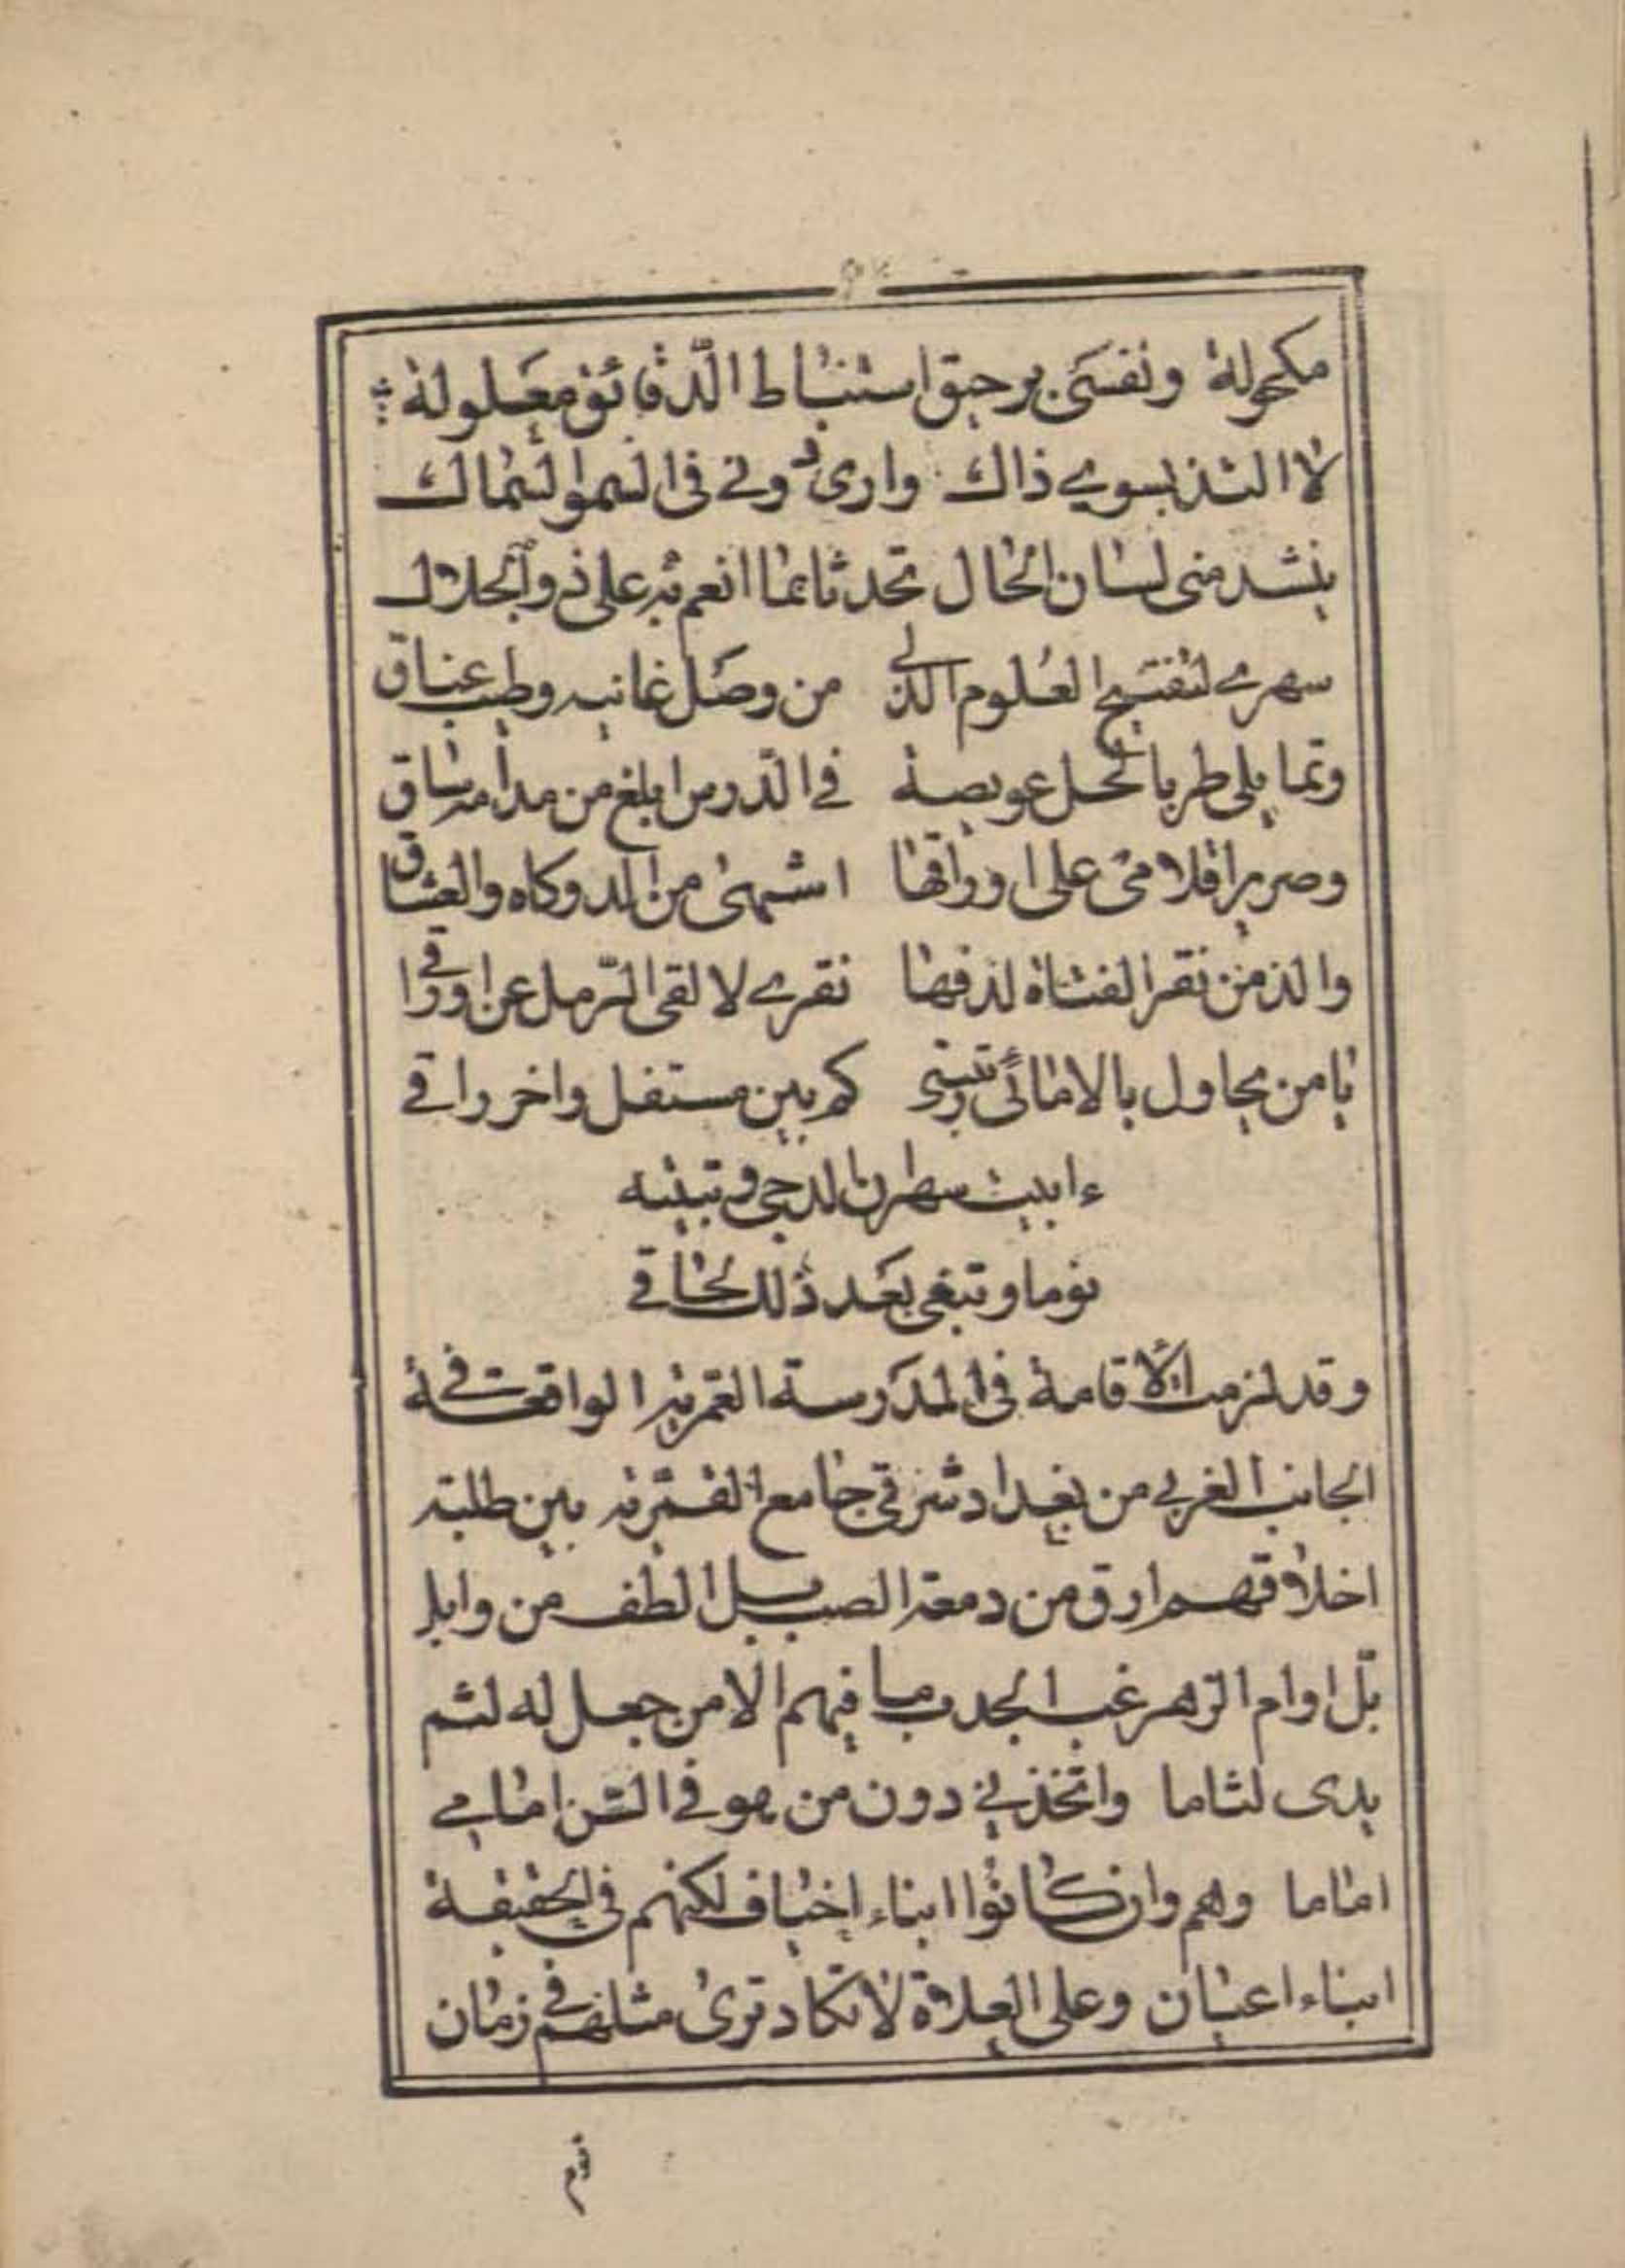 مكحولة ونفسي برحيق استنباط الدّقائق معلولة
لا التذ بسوي ذاك وارى دوني في السمو السماك
ينشد مني لسان الحال تحدثا بما انعم به على ذو الجلال
سهري لتنقيح العلوم الذ لي من وصل غانيه وطيب عناق
وتمايلي طربا لحل عويصة في الدّرس ابلغ من مدامه ساق
وصرير اقلامي على اوراقها اشهى من الدوكاه والعشاق
والذ من نقر الفتاة لدفها نقري لالقي الرّمل عن اوراقي
يا من يحاول بالاماني رتبتي كم بين مستفل واخر راقي
ءابيت سهران الدجى وتبيته
نوما وتبغي بعد ذلك لحاقي
وقد لزمت الاقامة في المدرسة القمريه الواقعة في
الجانب الغربي من بغداد شرقي جامع القمّريه بين طلبة
اخلاقهم ارق من دمعة الصب بل الطف من وابل
بّل اوام الزهر غب الجدب ما فيهم الا من جعل له لثم
يدى لثاما واتخذني دون من هو في السّن امامي
اماما وهم وان كانوا ابناء اخياف لكنهم في الحقيقة
ابناء اعيان وعلى العلاة لا تكاد ترى مثلهم في زمان